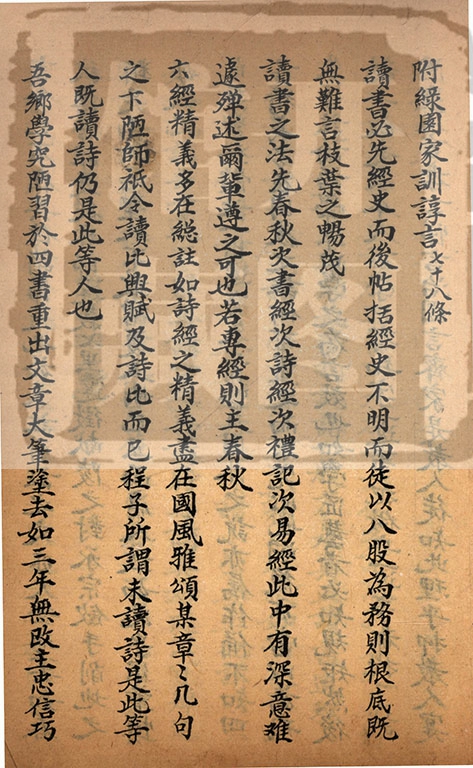 附綠園家訓諄言七十八條
讀書必先經史而後帖括經史不明而徒以八股為務則根底既
無難言枝葉之暢茂
讀書之法先春秋次書經次詩經次禮記次易經此中有深意难
遽殫述爾輩遵之可也若專經則主春秋
六經精義多在総註如詩經之精義盡在國風雅頌某章〻几句
之下陋師祇令讀比興賦及詩比而已程子所謂未讀詩是此等
人既讀詩仍是此等人也
吾鄉學究陋習於四書重出文章大筆塗去如三年無改主忠信巧